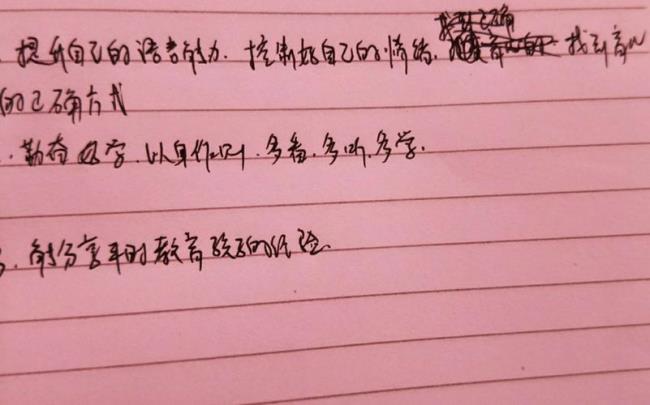 提升自己的语言能力.控制好自己的情绪.找到育儿
的正确方式
勤奋好学.以身作则.多看.多听.多学.
3.能分享平时教育孩子的经验.